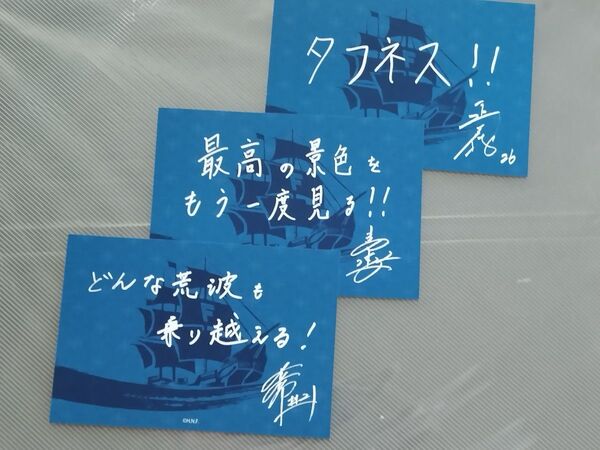 タフネス!!
26
最高の景色を
もう一度見る!!
どんな荒波も
乗り越える!
#21
©H.N.F.